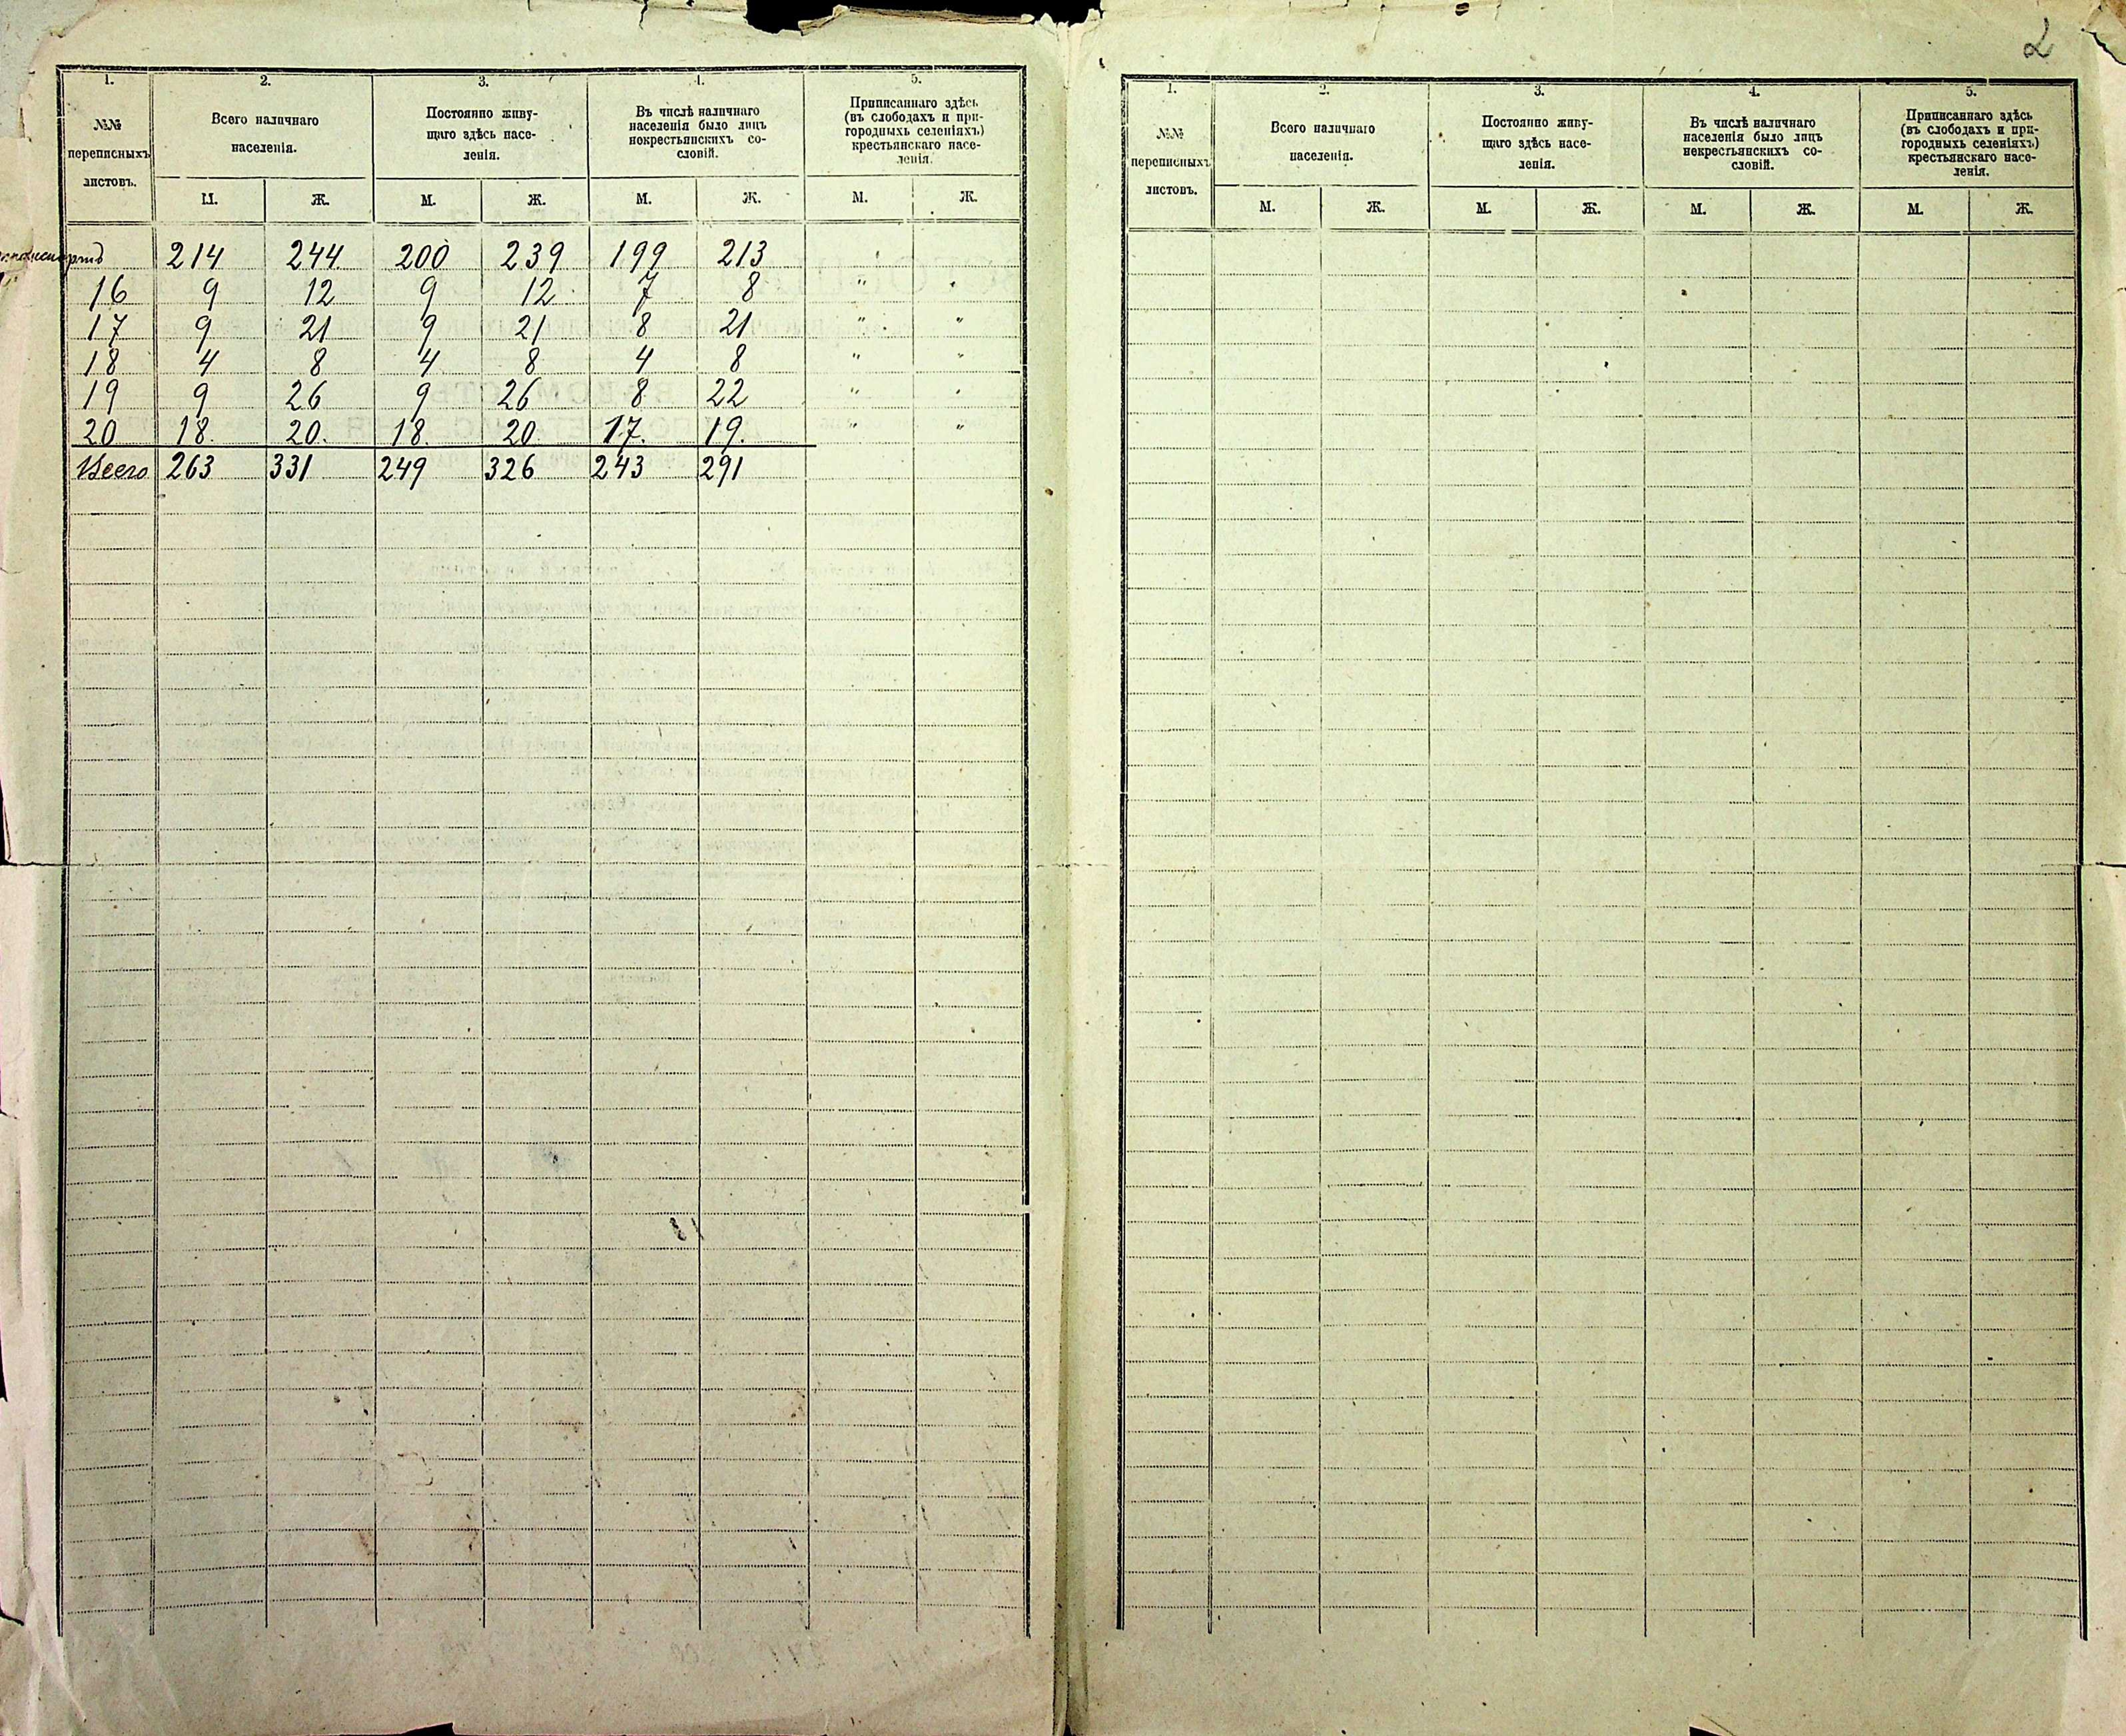 2
1. 2. 3. 4. 5.
№№ переписныхъ листовъ.
Всего наличнаго населенія.
Постоянно живу-
щаго здѣсь насе-
ленія.
Въ числѣ наличнаго
населенія было лицъ
некрестьянскихъ со-
словій.
Приписаннаго здѣсь
(въ слободахъ и при-
городныхъ селеніяхъ)
крестьянскаго насе-
ленія.
М. Ж. М. Ж. М. Ж. М. Ж.
214 244 200 239 199 213
16 9 12 9 12 7 8 " "
17 9 21 9 21 8 21 " "
18 4 8 4 8 4 8 " "
19 9 26 9 26 8 22 " "
20 18. 20. 18. 20 17. 19. " "
Всего 263 331 249 326 243 291
1. 2. 3. 4. 5.
№№ переписныхъ листовъ.
Всего наличнаго населенія.
Постоянно живу-
щаго здѣсь насе-
ленія.
Въ числѣ наличнаго
населенія было лицъ
некрестьянскихъ со-
словій.
Приписаннаго здѣсь
(въ слободахъ и при-
городныхъ селеніяхъ)
крестьянскаго насе-
ленія.
М. Ж. М. Ж. М. Ж. М. Ж.